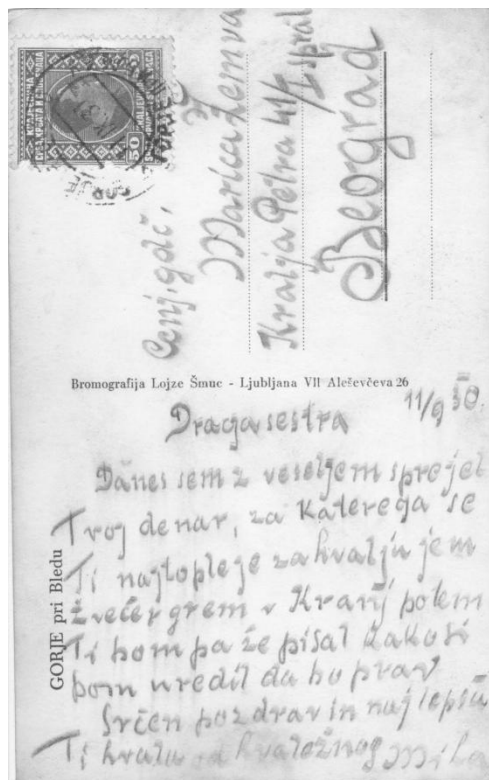 50
Cenj. gdč.
Marica Žemva
Kralja Petra 41/I sprat
Beograd
Bromografija Lojze Šmuc - Ljubljana VII Aleševčeva 26
GORJE pri Bledu
11/9 30.
Draga sestra
Danes sem z veseljem sprejel
Tvoj denar, za katerega se
Ti najtopleje zahvaljujem
Zvečer grem v Kranj potem
Ti bom pa že pisal kako si
bom uredil da bo prav
Srčen pozdrav in najlepša
Ti hvala od hvaležnog